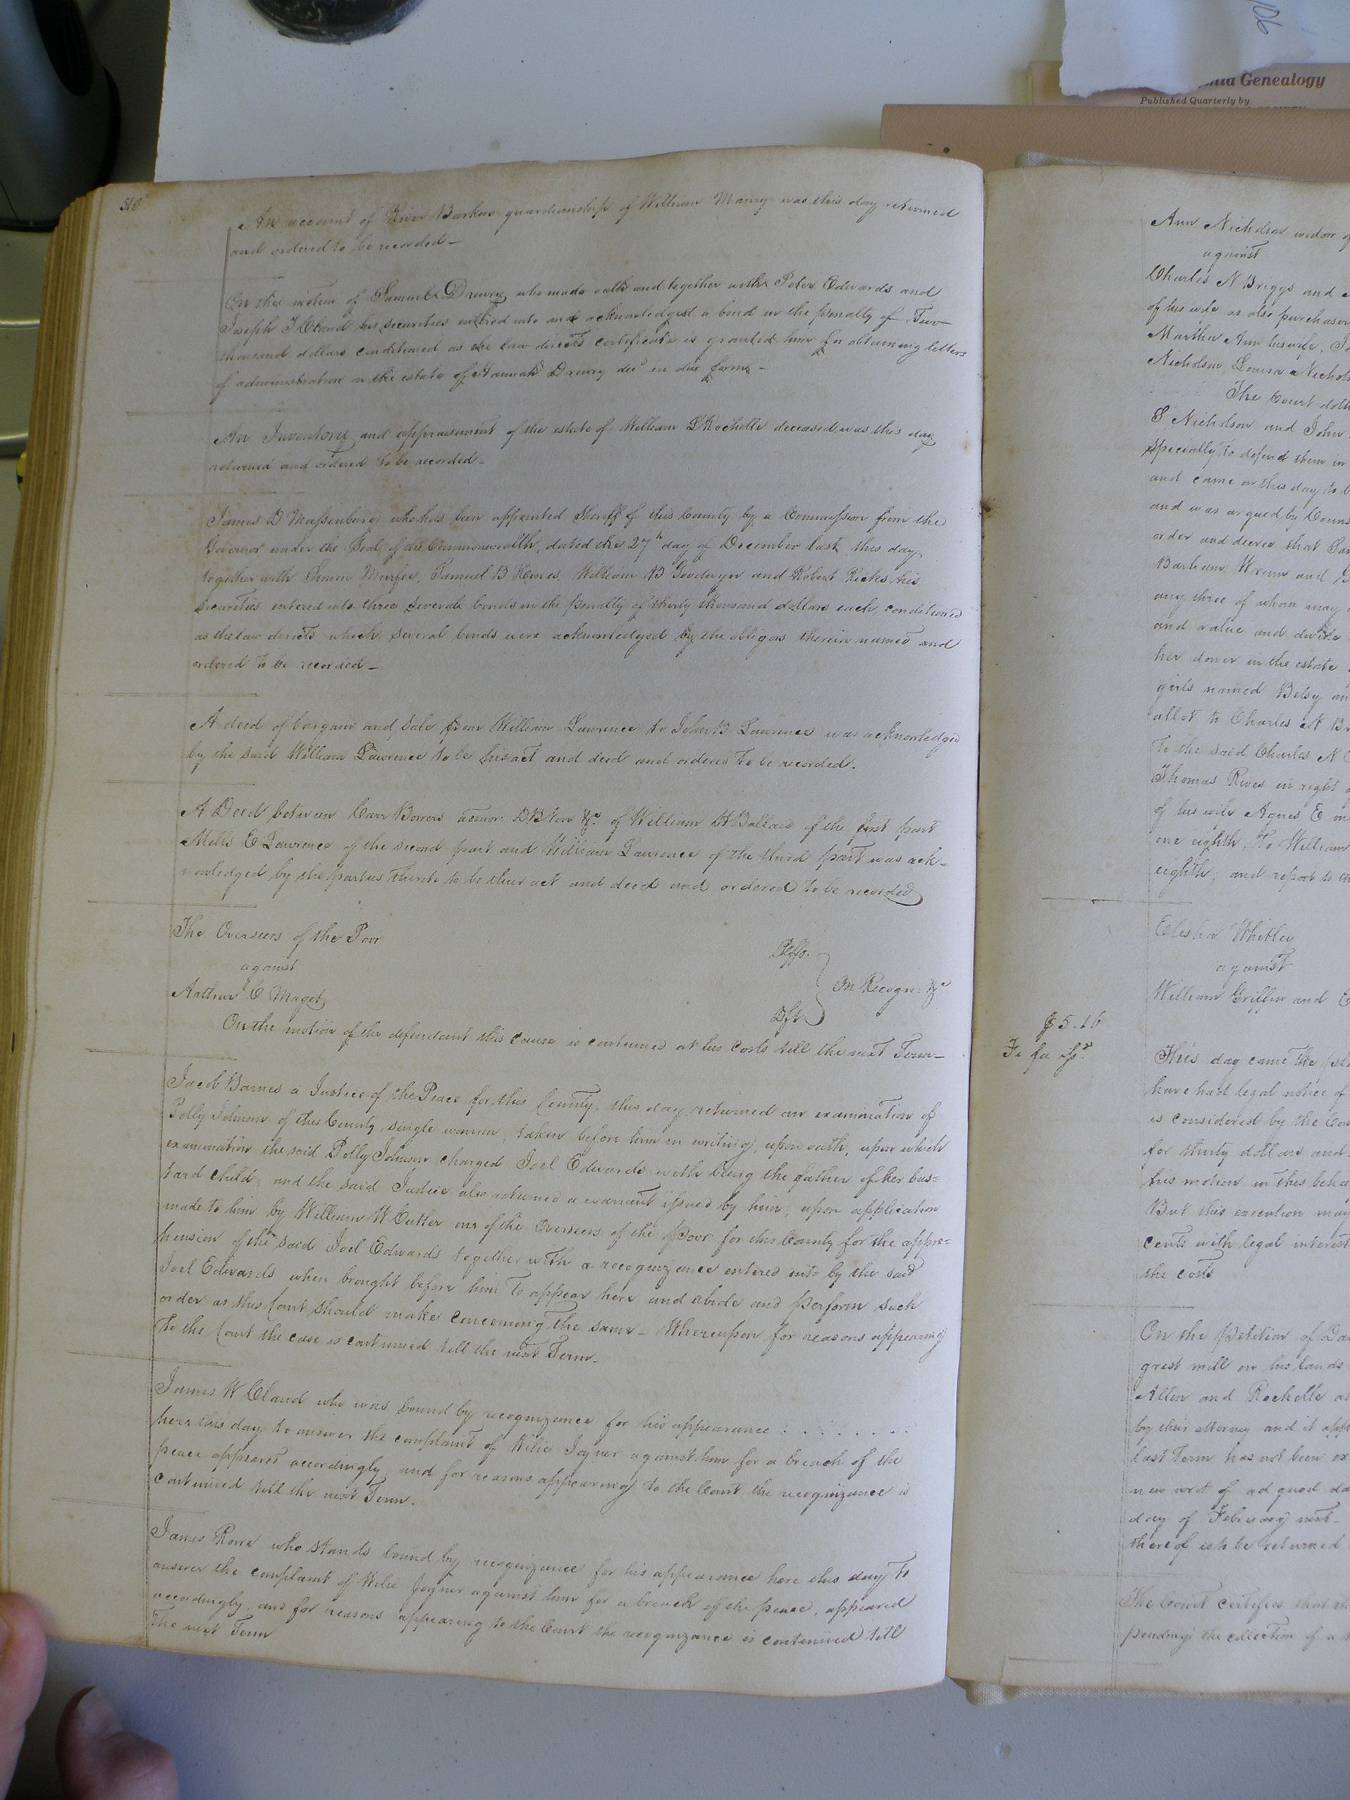 106
Genealogy
Published Quarterly by
An account of Barhams guardianship of William Manry was this day returned
and ordered to be recorded
On the motion of Samuel Drewry who made oath and together with Peter Edwards and
Joseph T Claud his securities entered into and acknowledged a bond in the penalty of Two
thousand dollars conditioned as the law directs certificate is granted him for obtaining letters
of administration on the estate of Hannah Drewry decd in due form
An Inventory and appraisement of the estate of William L Rochelle deceased was this day
returned and ordered to be recorded
James D Massenburg who has been appointed Sheriff of this County by a Commission from the
Governor under the Seal of the Commonwealth, dated the 27th day of December last, this day
together with Simon Murfee, Samuel B Hines, William B Goodwyn and Robert Ricks his
securities entered into three several bonds in the penalty of thirty thousand dollars each, conditioned
as the law directs which several bonds were acknowledged by the obligors therein named and
ordered to be recorded
A deed of bargain and sale from William Lawrence to John B Lawrence was acknowledged
by the said William Lawrence to be his act and deed and ordered to be recorded.
A Deed between Carr Bowers admor. &c. of William H Ballard of the first part
Mills E Lawrence of the second part and William Lawrence of the third part was ack-
nowledged by the parties thereto to be their act and deed and ordered to be recorded
The Overseers of the Poor Plffs.
against On Recognc &c
Arthur C Maget Dft
On the motion of the defendant this cause is continued at his costs till the next Term
Jacob Barnes a Justice of the Peace for this County, this day returned an examination of
Polly Johnson of this County single woman, taken before him in writing, upon oath, upon which
examination the said Polly Johnson charged Joel Edwards with being the father of her bas=
tard child, and the said Justice also returned a warrant issued by him, upon application
made to him by William W Cutler one of the Overseers of the Poor for this County for the appre=
hension of the said Joel Edwards together with a recognizance entered into by the said
Joel Edwards when brought before him to appear here and abide and perform such
order as this Court should make concerning the same - Whereupon for reasons appearing
to the Court the case is continued till the next Term.
James W Claud who was bound by recognizance for his appearance
here this day to answer the complaint of Wilie Joyner against him for a breach of the
peace appeared accordingly, and for reasons appearing to the Court the recognizance is
continued till the next Term.
James Rowe who stands bound by recognizance for his appearance here this day to
answer the complaint of Wilie Joyner against him for a breach of the peace, appeared
accordingly, and for reasons appearing to the Court the recognizance is continued till
the next Term
Ann Nicholson widow
against
Charles N Briggs and
of his wife as also purchaser
Martha Ann his wife,
Nicholson, Louisa Nichols
The Court doth
S Nicholson and John
specially to defend them in
and came on this day to
and was argued by Couns
order and decree that
Barham, Wrenn and
any three of whom may
and value and divide
her dower in the estate
girls named Betsy an
allot to Charles N
to the said Charles N
Thomas Rives in right
of his wife Agnes E
one eighth, To William
eighth, and report to
Elisha Whitley
against
William Griffin and
$5.16
Fi fa issd
This day came the
have had legal notice of
is considered by the
for thirty dollars and
his motion in this beha
But this execution may
cents with legal interest
the costs
On the petition of
grist mill on his lands
Allen and Rochelle
by their attorney and it app
last Term has not been
new writ of ad quod da
day of February next
thereof to be returned
The Court certifies that
pending the collection of a